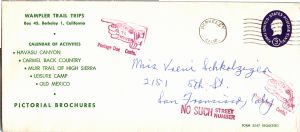 WAMPLER TRAIL TRIPS
Box 45, Berkeley 1, California
CALENDAR OF ACTIVITIES
• HAVASU CANYON
• CARMEL BACK COUNTRY
• MUIR TRAIL OF HIGH SIERRA
• LEISURE CAMP
• OLD MEXICO
PICTORIAL BROCHURES
Postage Due Cents
BERKELEY
CALIF.
UNITED STATES POSTAGE
3
Miss
2151 8th St.
San Francisco, Calif
NO SUCH STREET NUMBER
FORM 3547 REQUESTED